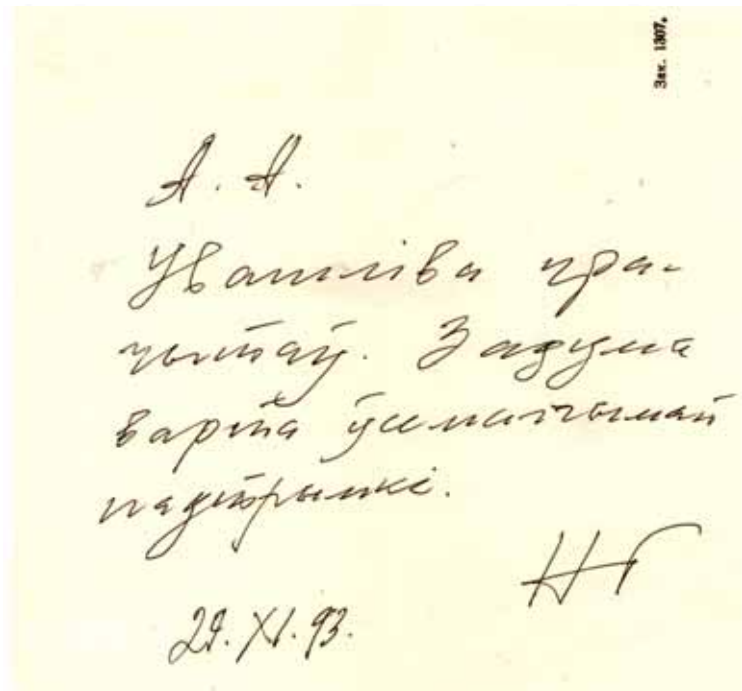 Зак. 1307.
А. А.
Уважліва пра-
чытаў. Задума
варта ўсемагчымай
падтрымкі.
НГ
29. XI. 93.